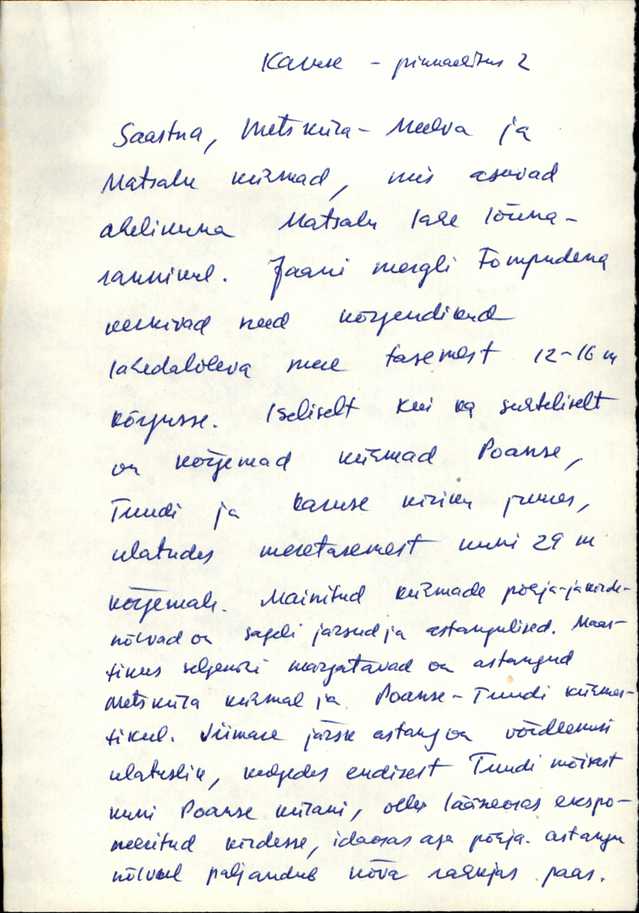 Karuse – pinnaehitus 2
Saastna, Metsküla – Meelva ja
Matsalu kürmad, mis asuvad
ahelikuna Matsalu lahe lõuna-
rannikul. Jaani mergli tompudena
kerkivad need kõrgendikud
lahedaloleva mere tasemest 12–16 m
kõrgusse. Iseliselt kui ka suhteliselt
on kõrgemad kürmad Poanse,
Tuudi ja Karuse kiriku juures,
ulatudes meretasemest kuni 29 m
kõrgemale. Mainitud kürmade põhja- ja kirde-
nõlvad on sageli järsud ja astangulised. Maas-
tikus selgemini märgatavad on astangud
Metsküla kürmal ja Poanse – Tuudi kürmas-
tikul. Viimase järsk astang on võrdlemisi
ulatuslik, kulgedes endisest Tuudi mõisast
kuni Poanse külani, olles lääneosas ekspo-
neeritud kirdesse, idaosas aga põhja. Astangu
nõlval paljandub kõva rähkjas paas.